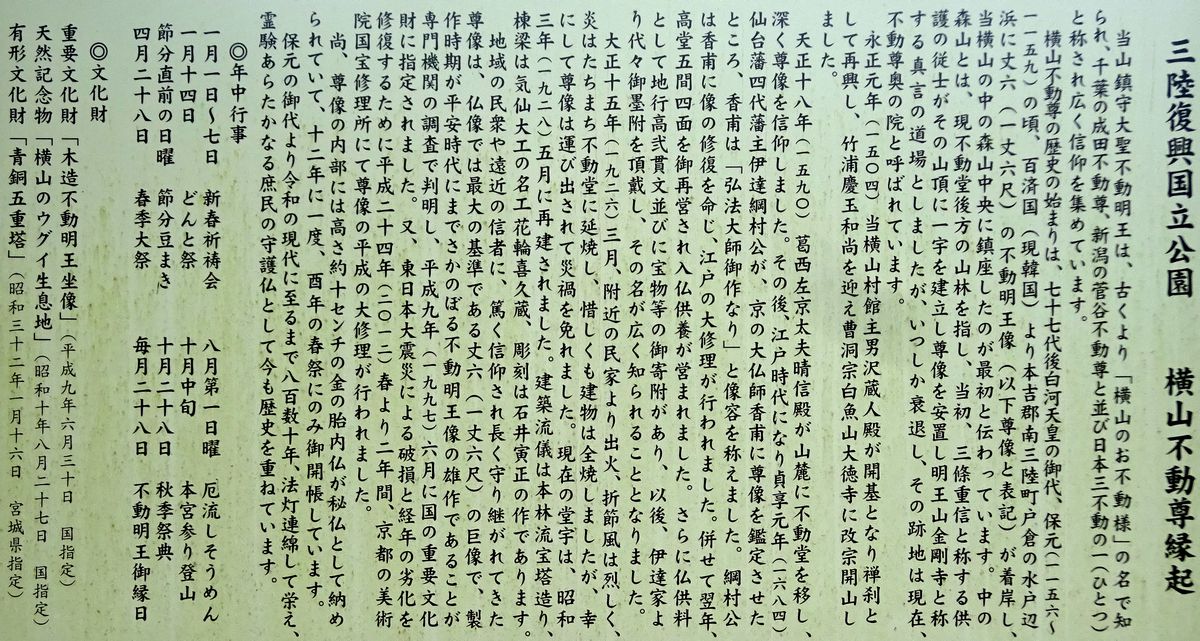 三陸復興国立公園　横山不動尊縁起
当山鎮守大聖不動明王は、古くより「横山のお不動様」の名で知
られ、千葉の成田不動尊、新潟の菅谷不動尊と並び日本三不動の一（ひとつ）
と称され広く信仰を集めています。
横山不動尊の歴史の始まりは、七十七代後白河天皇の御代、保元（一一五六〜
一一五九）の頃、百済国（現韓国）より本吉郡南三陸町戸倉の水戸辺
浜に丈六（一丈六尺）の不動明王像（以下尊像と表記）が着岸し、
当横山の中の森山中央に鎮座したのが最初と伝わっています。中の
森山とは、現不動堂後方の山林を指し、当初、三條重信と称する供
護の従士がその山頂に一宇を建立し尊像を安置し明王山金剛寺と称
する真言の道場としましたが、いつしか衰退し、その跡地は現在、
不動尊奥の院と呼ばれています。
永正元年（一五〇四）当横山村館主男沢蔵人殿が開基となり禅利と
して再興し、竹浦慶玉和尚を迎え曹洞宗白魚山大徳寺に改宗開山し
ました。
天正十八年（一五九〇）葛西左京太夫晴信殿が山麓に不動堂を移し、
深く尊像を信仰しました。その後、江戸時代になり貞享元年（一六八四）
仙台藩四代藩主伊達綱村公が、京の大仏師香甫に尊像を鑑定させた
ところ、香甫は「弘法大師御作なり」と像容を称えました。綱村公
は香甫に像の修復を命じ、江戸の大修理が行われました。併せて翌年、
高堂五間四面を御再営され入仏供養が営まれました。さらに仏供料
として地行高弐貫文並びに宝物等の御寄附があり、以後、伊達家よ
り代々御墨附を頂戴し、その名が広く知られることとなりました。
大正十五年（一九二六）三月、附近の民家より出火、折節風は烈しく、
炎はたちまち不動堂に延焼し、惜しくも建物は全焼しましたが、幸
にして尊像は運び出されて災禍を免れました。現在の堂宇は、昭和
三年（一九二八）五月に再建されました。建築流儀は本林流宝塔造り、
棟梁は気仙大工の名工花輪喜久蔵、彫刻は石井寅正の作であります。
地域の民衆や遠近の信者に、篤く信仰され長く守り継がれてきた
尊像は、仏像では最大の基準である丈六（一丈六尺）の巨像で、製
作時期が平安時代にまでさかのぼる不動明王像の雄作であることが
専門機関の調査で判明し、平成九年（一九九七）六月に国の重要文化
財に指定されました。又、東日本大震災による破損と経年の劣化を
修復するために平成二十四年（二〇一二）春より二年間、京都の美術
院国宝修理所にて尊像の平成の大修理が行われました。
尚、尊像の内部には高さ約十センチの金の胎内仏が秘仏として納め
られていて、十二年に一度、酉年の春祭にのみ御開帳しています。
保元の御代より令和の現代に至るまで八百数十年、法灯連綿して栄え、
霊験あらたかなる庶民の守護仏として今も歴史を重ねています。
◎年中行事
一月一日〜七日　新春祈祷会　八月第一日曜　厄流しそうめん
一月十四日　どんと祭　十月中旬　本宮参り登山
節分直前の日曜　節分豆まき　十月二十八日　秋季祭典
四月二十八日　春季大祭　毎月二十八日　不動明王御縁日
◎文化財
重要文化財「木造不動明王坐像」（平成九年六月三十日　国指定）
天然記念物「横山のウグイ生息地」（昭和十年八月二十七日　国指定）
有形文化財「青銅五重塔」（昭和三十二年一月十六日　宮城県指定）